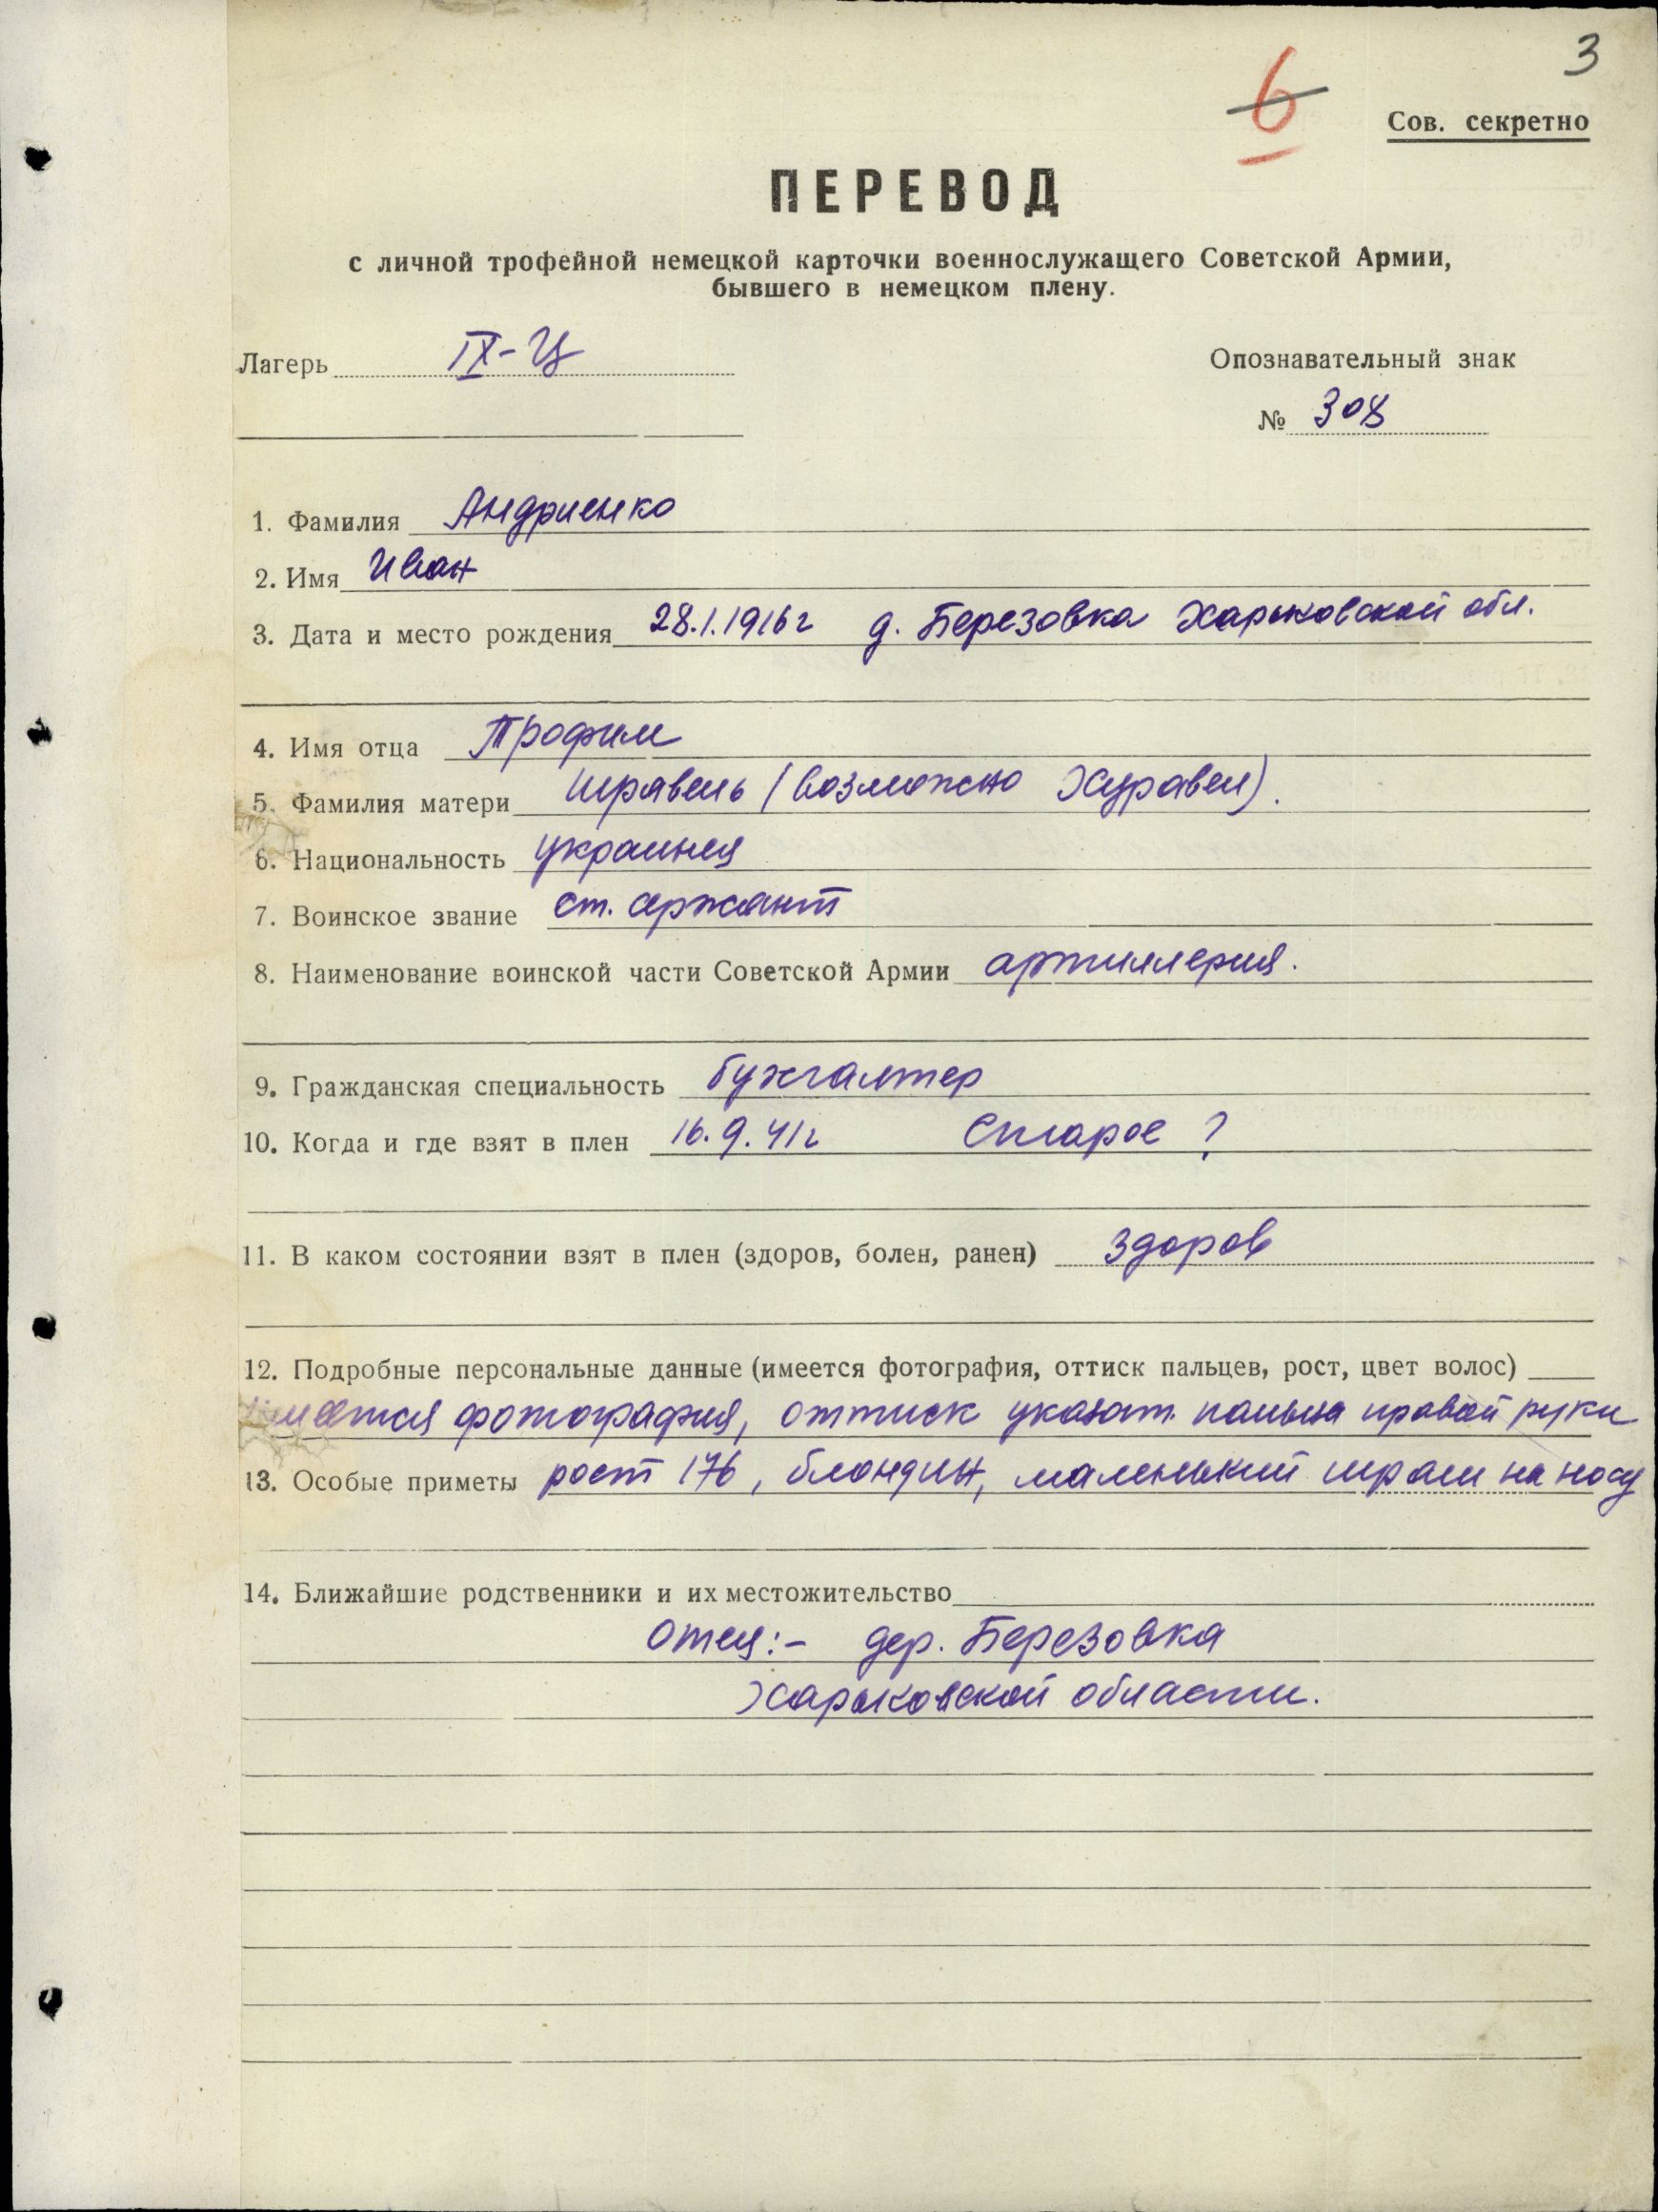 3
6
Сов. секретно
ПЕРЕВОД
с личной трофейной немецкой карточки военнослужащего Советской Армии,
бывшего в немецком плену.
Лагерь IX-Ц Опознавательный знак
№ 308
1. Фамилия Андриенко
2. Имя Иван
3. Дата и место рождения 28.1.1916 г д. Березовка Харьковской обл.
4. Имя отца Трофим
5. Фамилия матери Шравель (возможно Журавел).
6. Национальность украинец
7. Воинское звание ст. сержант
8. Наименование воинской части Советской Армии артиллерия.
9. Гражданская специальность бухгалтер
10. Когда и где взят в плен 16.9.41 г ?
11. В каком состоянии взят в плен (здоров, болен, ранен) здоров
12. Подробные персональные данные (имеется фотография, оттиск пальцев, рост, цвет волос)
имеется фотография, оттиск указат. пальца правой руки
13. Особые приметы рост 176, блондин, маленький шрам на носу
14. Ближайшие родственники и их местожительство
Отец:- дер. Березовка
Харьковской области.